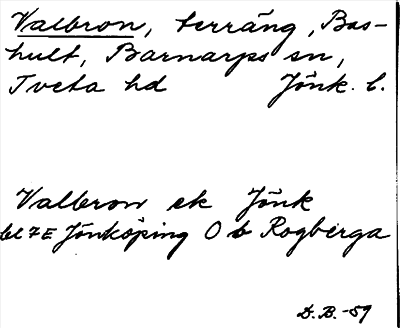 Valbron, terräng, Bos-
hult, Barnarps sn,
Tveta hd Jönk. l.
Valbron ek Jönk
bl 7E Jönköping O b Rogberga
D.B.-59